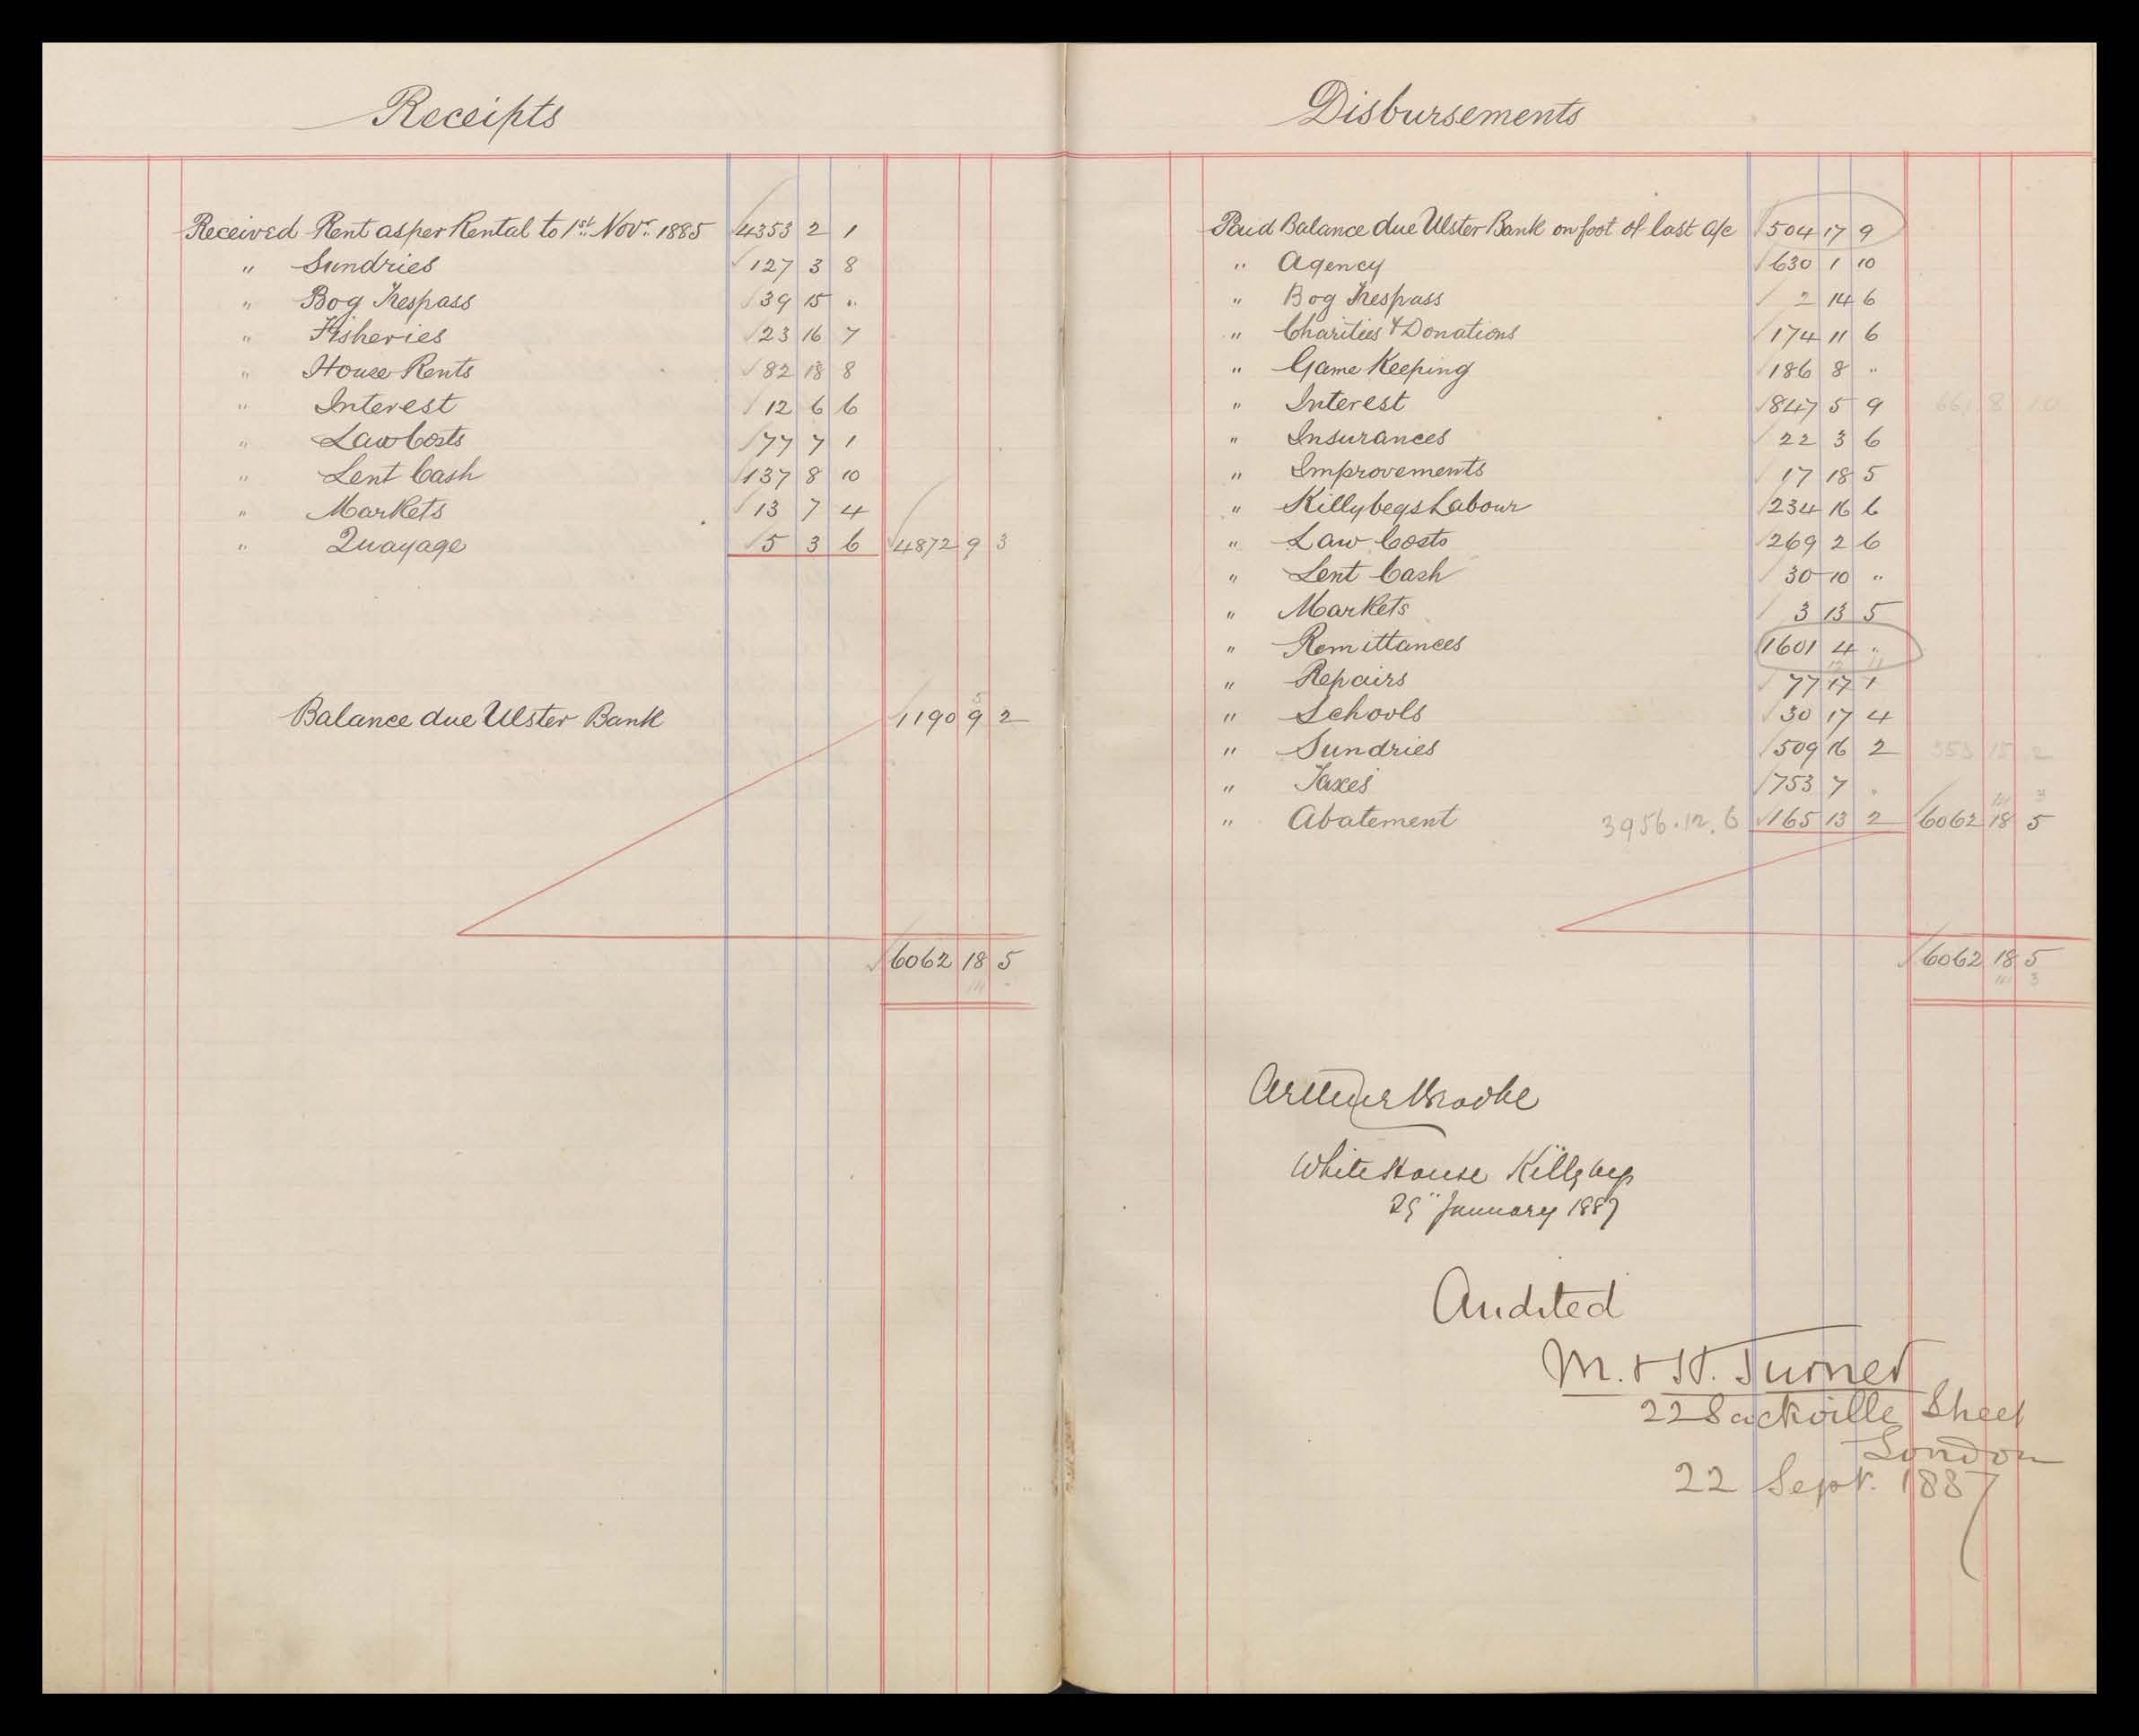 Receipts
Received Rent as per Rental to 1st Novr. 1885 4353 2 1
" Sundries 127 3 8
" Bog Trespass 39 15 "
" Fisheries 23 16 7
" House Rents 82 18 8
" Interest 12 6 6
" Law Costs 77 7 1
" Lent Cash 137 8 10
" Markets 13 7 4
" Quayage 5 3 6 4872 9 3
5
Balance due Ulster Bank 1190 9 2
6062 18 5
14
Disbursements
Paid Balance due Ulster Bank on foot of last a/c 504 17 9
" Agency 630 1 10
" Bog Trespass 2 14 6
" Charities & Donations 174 11 6
" Game Keeping 186 8 "
" Interest 847 5 9 661 8 10
" Insurances 22 3 6
" Improvements 17 18 5
" Killybegs Labour 234 16 6
" Law Costs 269 2 6
" Lent Cash 30 10 "
" Markets 3 13 5
" Remittances 1601 4 "
12 11
" Repairs 77 17 1
" Schools 30 17 4
" Sundries 509 16 2 353 15 2
" Taxes 753 7 "
14 3
" Abatement 3956.12.6 165 13 2 6062 18 5
6062 18 5
14 3
Arthur Brooke
White House Killybegs
29" January 1887
Audited
M. & H. Turner
22 Sackville Street
London
22 Sept. 1887